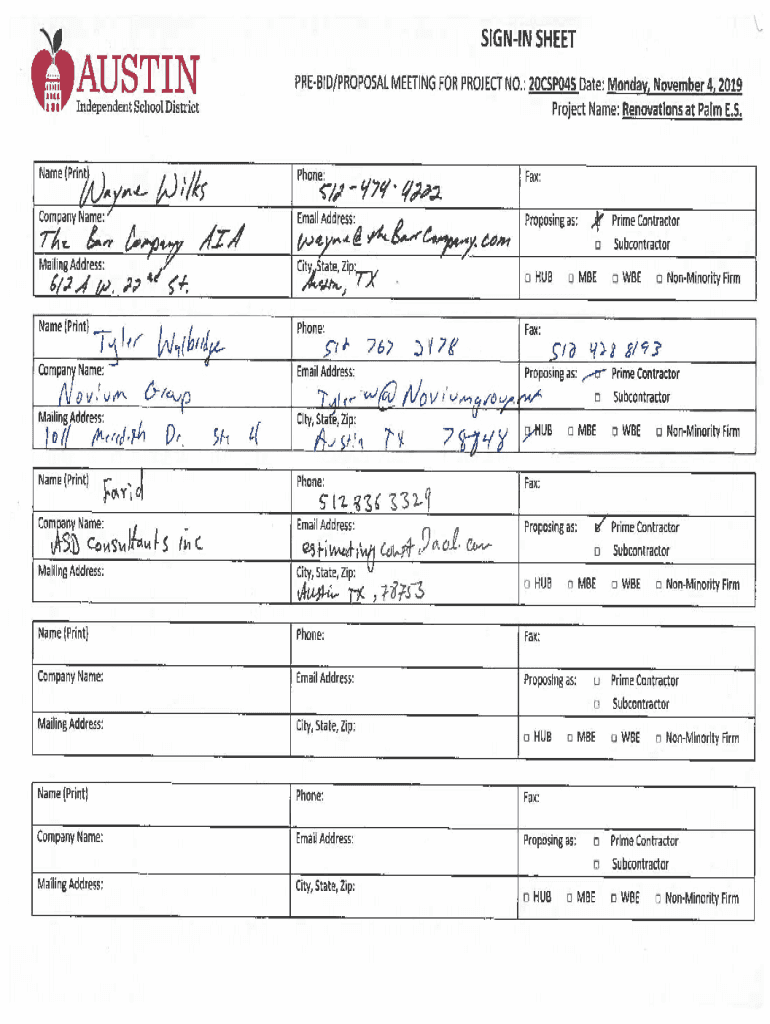 SIGN-IN SHEET
AUSTIN
Independent School District
PRE-BID/PROPOSAL MEETING FOR PROJECT NO.: 20CSP045 Date: Monday, November 4, 2019
Project Name: Renovations at Palm E.S.
Name (Print) Wayne Wilks Phone: 512-474-4222 Fax:
Company Name: The Barr Company AIA Email Address: wayne@theBarrCompany.com Proposing as: Prime Contractor
□ Subcontractor
Mailing Address: 612 A W. 22nd St. City, State, Zip: Austin, TX □ HUB □ MBE □ WBE □ Non-Minority Firm
Name (Print) Tyler Phone: 512 767 2478 Fax: 512 428 8193
Company Name: Novium Group Email Address: Tylerw@Noviumgroup. Proposing as: Prime Contractor
□ Subcontractor
Mailing Address: 1011 Meredith Dr. Ste 4 City, State, Zip: Austin TX 78748 HUB □ MBE □ WBE □ Non-Minority Firm
Name (Print) Farid Phone: 512 836 3329 Fax:
Company Name: ASD Consultants inc Email Address: Proposing as: Prime Contractor
□ Subcontractor
Mailing Address: City, State, Zip: Austin TX, 78753 □ HUB □ MBE □ WBE □ Non-Minority Firm
Name (Print) Phone: Fax:
Company Name: Email Address: Proposing as: □ Prime Contractor
□ Subcontractor
Mailing Address: City, State, Zip: □ HUB □ MBE □ WBE □ Non-Minority Firm
Name (Print) Phone: Fax:
Company Name: Email Address: Proposing as: □ Prime Contractor
□ Subcontractor
Mailing Address: City, State, Zip: □ HUB □ MBE □ WBE □ Non-Minority Firm